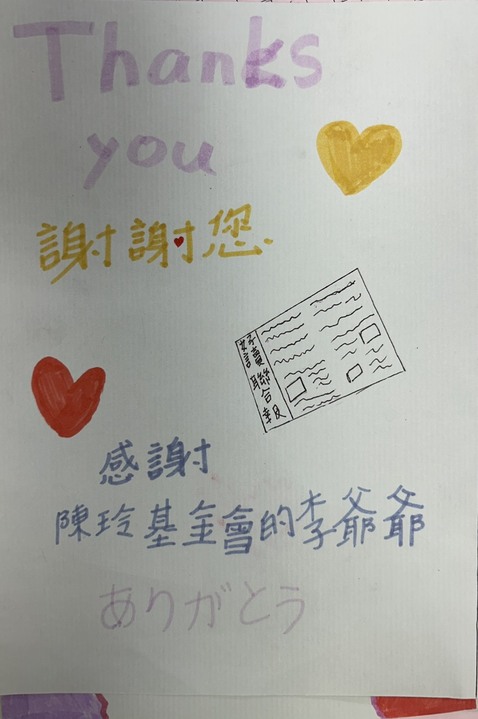 Thanks
you
謝謝您
好讀
周報
聯合報
感謝
陳玲基金會的李爺爺
ありがとう